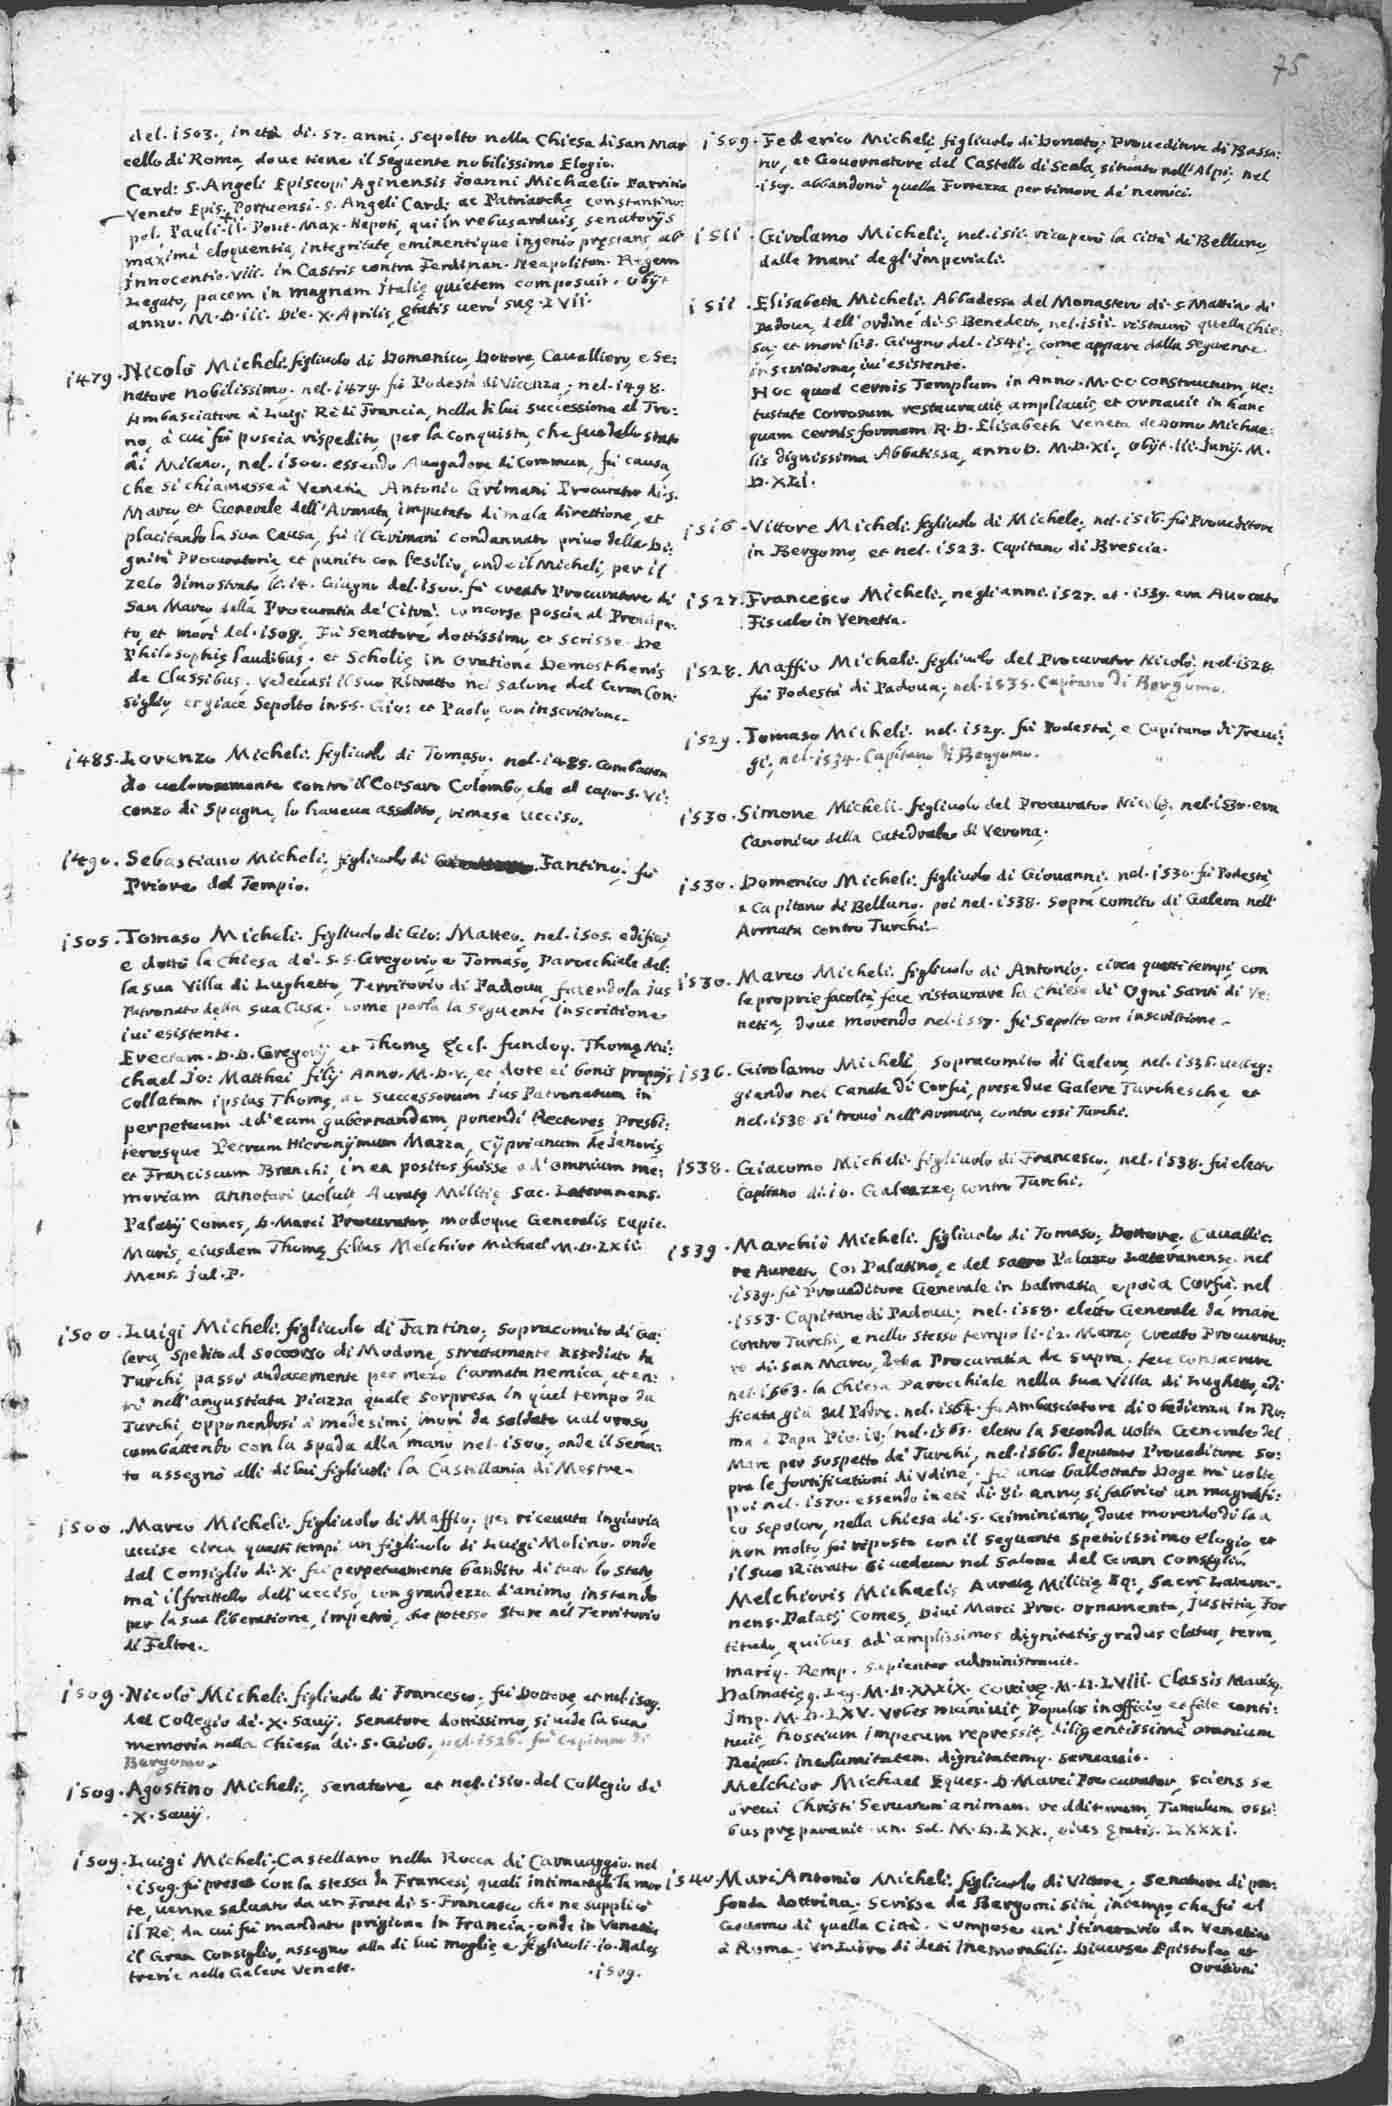 75
del. 1503., in età di. 57. anni. Sepolto nella Chiesa di San Mar
cello di Roma, doue tiene il Seguente nobilissimo Elogio.
Card: S. Angeli Episcopi Aginensis Joanni Michaelio Patritio
Veneto Epis. Portuensi. S. Angeli Card: ac Patriarchę Constantino:
pol. Pauli. II. Pont. Max. Nepoti, qui in rebus arduis, senatorijs
maximè eloquentia, integritate, eminentique ingenio pręstans, ab
Innocentio. VIII. in Castris contra Ferdinan. Neapolitan. Regem
Legato, pacem in magnam Italię quietem composuit. Obijt
anno. M.D.iii. Die. X. Aprilis, ętatis uerò suę. LVII.
1479. Nicolò Micheli. figliuolo di Domenico, Dottore, Caualliero, e Se:
natore nobilissimo. nel. 1479. fù Podestà di Vicenza; nel. 1498.
Ambasciatore à Luigi Rè di Francia, nella di lui successione al Tro:
no, à cui fù poscia rispedito, per la conquista, che fece dello stato
di Milano., nel. 1500. essendo Auogadore di Commun, fù causa,
che si chiamasse à Venetia Antonio Grimani Procurator di. S.
Marco, et Generale dell'Armata, imputato di mala direttione, et
placitando la sua Causa, fù il Grimani condannato priuo della Di:
gnità Procuratoria, et punito con l'esilio, onde il Micheli, per il
zelo dimostrato li. 14. Giugno del. 1500. fù creato Procuratore di
San Marco, dalla Procuratia de' Citrà. concorse poscia al Prencipa:
to, et morì del. 1508. Fù Senatore dottissimo, et scrisse. De
Philosophię laudibus. et Scholię in Oratione Demosthenis
de Classibus. Vedeuasi il suo Ritratto nel Salone del Gran Con:
siglio, et giace Sepolto in. SS. Gio: et Paolo, con inscrittione.
1485. Lorenzo Micheli. figliuolo di Tomaso. nel. 1485. Combatten
do ualorosamente contro il Corsaro Colombo, che al capo. S. Vi:
cenzo di Spagna, lo haueua assalito, rimase ucciso.
1490. Sebastiano Micheli. figliuolo di Fantino; fù
Priore del Tempio.
1505. Tomaso Micheli. figliuolo di Gio: Matteo, nel. 1505. edificò
e dottò la Chiesa de'. S.S. Gregorio, e Tomaso, Parochiale del:
la sua Villa di Lughetto, Territorio di Padoua, facendola Jus
Patronato della sua Casa. come parla la seguente inscrittione
iui esistente.
Erectam. D.D. Gregorij, et Thomę Eccl. Thomę Mi:
chael Jo: Matthei filij Anno. M.D.V., et dote ei bonis proprijs
Collatam ipsius Thomę, ac Successorum Jus Patronatum in
perpetuum ad eam gubernandam, ponendi Rectores, Presbi:
terosque Petrum Hieronymum Mazza, Cÿprianum de Janoris
et Franciscum Branchi, in ea positos fuisse ad omnium me:
moriam annotari uoluit Auratę Militię Sac. Lateranens.
Palatij Comes, D. Marci Procurator, modoque Generalis Capit.
Maris, eiusdem Thomę filius Melchior Michael M.D.LXII.
Mens. Jul. P.
1500. Luigi Micheli. figliuolo di Fantino, Sopracomito di Ga:
lera, Spedito al Soccorso di Modone, strettamente assediato da
Turchi passò audacemente per mezo l'armata nemica, et en:
trò nell'angustiata Piazza quale sorpresa in quel tempo da
Turchi, opponendosi à medesimi, morì da soldato ualoroso,
combattendo con la spada alla mano nel. 1500. onde il Sena:
to assegnò alli di lui figliuoli la Castellania di Mestre.
1500. Marco Micheli. figliuolo di Maffio; per riceuuta ingiuria
uccise circa questi tempi un figliuolo di Luigi Molino. onde
dal Consiglio di. X. fù perpetuamente bandito di tutto lo Stato,
mà il frattello dell'ucciso, con grandezza d'animo, instando
per la sua liberatione, impetrò, che potesse stare nel Territorio
di Feltre.
1509. Nicolò Micheli. figliuolo di Francesco. fù Dottore, et nel. 1509.
del Collegio de'. X. Sauij. Senatore dottissimo, si uede la sua
memoria nella Chiesa di. S. Giob. nel. 1526. fù Capitano di
Bergomo.
1509. Agostino Micheli, senatore, et nel. 1510. del Collegio di
. X. Sauij.
1509. Luigi Micheli, Castellano nella Rocca di Carauaggio. nel
. 1509. fù preso con la stessa da Francesi, quali intimatagli la mor
te, uenne saluato da un Frate di. S. Francesco, che ne supplicò
il Rè, da cui fù mandato prigione in Francia. onde in Venetia
il Gran Consiglio, assegnò alla di lui moglie e figliuoli. 10. Bales
trerie nelle Galere Venete.
. 1509.
1509. Federico Micheli, figliuolo di Donato; Proueditore di Bassa:
no, et Gouernatore del Castello di Scala, situato nell'Alpi; nel
. 1509. abbandonò quella Fortezza per timore de' nemici.
1511. Girolamo Micheli, nel. 1511. ricuperò la Città di Belluno,
dalle mani degl'Imperiali.
1511. Elisabetta Micheli, Abbadessa del Monastero di. S. Mattio di
Padoua, dell'ordine di. S. Benedetto, nel. 1511. ristaurò quella Chie:
sa, et morì li. 3. Giugno del. 1541., come appare dalla Seguente
inscrittione, iui esistente.
Hoc quod cernis Templum in Anno. M.CC Constructum, Ue:
tustate Corrosum restaurauit, ampliauit, et ornauit in hanc
quam cernis formam R. D. Elisabeth Veneta de Domo Michae:
lis dignissima Abbatissa, anno D. M.D.XI., Obijt. III. Junij. M.
D.XLI.
1516. Vittore Micheli. figliuolo di Michele; nel. 1516. fù Proueditore
in Bergomo, et nel. 1523. Capitano di Brescia.
1527. Francesco Micheli, negli anni. 1527. et. 1539. era Auocato
Fiscale in Venetia.
1528. Maffio Micheli. figliuolo del Procurator Nicolò; nel. 1528.
fù Podestà di Padoua; nel. 1535. Capitano di Bergomo.
1529. Tomaso Micheli. nel. 1529. fù Podestà, e Capitano di Treui:
gi, nel. 1534. Capitano di Bergomo.
1530. Simone Micheli. figliuolo del Procurator Nicolò, nel. 1530. era
Canonico della Catedrale di Verona.
1530. Domenico Micheli. figliuolo di Giouanni. nel. 1530. fù Podestà,
e Capitano di Belluno. poi nel. 1538. Sopracomito di Galera nell'
Armata contro Turchi.
1530. Marco Micheli. figliuolo di Antonio; circa questi tempi, con
le proprie facoltà, fece ristaurare la Chiesa di Ogni Santi di Ve:
netia, doue morendo nel. 1557. fù Sepolto con inscrittione.
1536. Girolamo Micheli, Sopracomito di Galera, nel. 1536. ueleg:
giando nel Canale di Corfù, prese due Galere Turchesche, et
nel. 1538 si trouò nell'Armata, contro essi Turchi.
1538. Giacomo Micheli. figliuolo di Francesco, nel. 1538. fù eletto
Capitano di. 10. Galeazze, contro Turchi.
1539. Marchiò Micheli. figliuolo di Tomaso, Dottore, Caualie:
re Aureato, Con Palatino, e del Sacro Palazzo Lateranense. nel
. 1539. fù Proueditore Generale in Dalmatia, e poi a Corfù. nel
. 1553. Capitano di Padoua; nel. 1558. eletto Generale da mare
contro Turchi, e nello stesso tempo li. 12. Marzo, creato Procurato:
re di San Marco, della Procuratia de Supra. fece consacrare
nel. 1563. la Chiesa Parochiale nella sua Villa di Lughetto, edi
ficata già dal Padre. nel. 1564. fù Ambasciatore di obedienza in Ro:
ma à Papa Pio. IV. nel. 1565. eletto la Seconda uolta Generale del
Mare per suspetto de' Turchi, nel. 1566. deputato Proueditore So:
pra le fortificationi di Vdine; fù anco ballottato Doge trè uolte,
poi nel. 1570. essendo in età di. 81. anno, si fabricò un magnifi:
co Sepolcro, nella Chiesa di. S. Giminiano, doue morendo di là à
non molto, fù riposto con il seguente speciosissimo elogio, et
il suo Ritratto si uedeua nel Salone del Gran Consiglio.
Melchioris Michaelis Auratę Militię Eq:, Sacri Latera:
nens. Palatij Comes, Diui Marci Proc. ornamenta, Justitia, For
titudo, quibus ad amplissimos dignitatis gradus elatus, terra,
mariq. Remp. Sapienter administrauit.
Dalmatięq. Leg. M.D.XXXIX. Corcirę. M.D.LVIII. Classis Marisq.
Imp. M.D.LXV. Vrbes muniuit, Populos in officio et fide conti:
nuit, hostium impetum repressit, diligentissimè omnium
Reipub. incolumitatem. dignitatemq. seruauit.
Melchior Michael Eques. D. Marci Procurator, sciens se
breui Christi Seruatori animam redditurum, Tumulum ossi:
bus pręparauit an. Sal. M.D.LXX., eius ętatis. LXXXI.
1540. Marc'Antonio Micheli. figliuolo di Vittore; Senatore di pro:
fonda dottrina. Scrisse de Bergomi situ, in tempo che fù al
Gouerno di quella Città. Compose un'Itinerario da Venetia
à Roma. Vn Libro di detti memorabili. Diuerse Epistole, et
Orationi